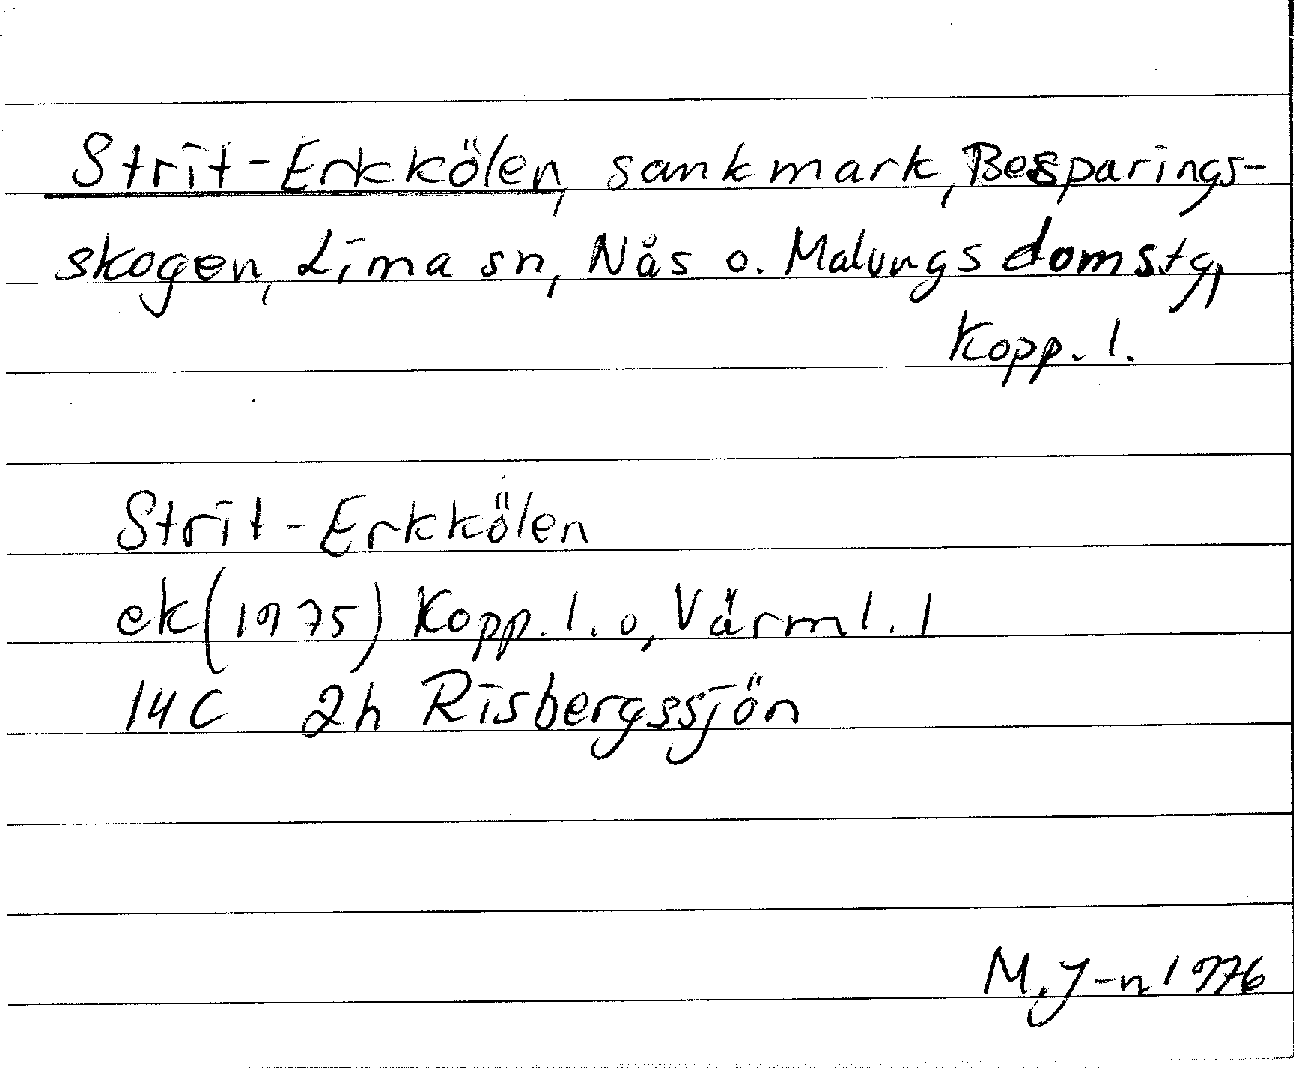 Strit-Erkkölen, sankmark, Besparings-
skogen, Lima sn, Nås o. Malungs domstg,
Kopp. l.
Strit-Erkkölen
ek (1975) Kopp. l. o, Värml. l
14C 2h Risbergssjön
M. J-n 1976